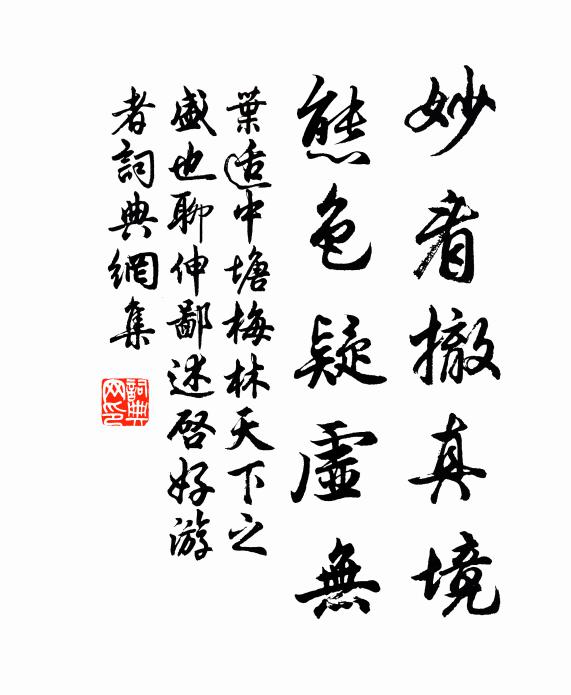 妙看撤真境
態色疑虛無
葉适中塘梅林天下之
盛也聊伸鄙述啓好游
者詞典網集
詞典
网印